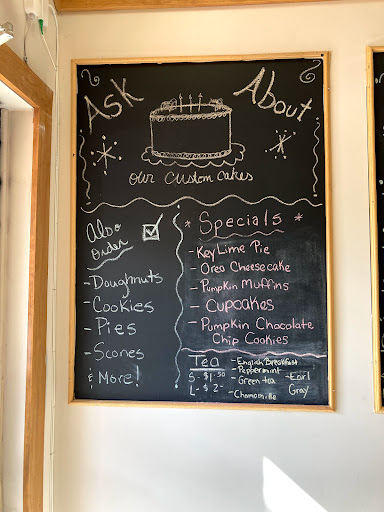 Ask About
our custom cakes
Also
order
- Doughnuts
- Cookies
- Pies
- Scones
& More!
* Specials *
- Key Lime Pie
- Oreo Cheesecake
- Pumpkin Muffins
Cupcakes
- Pumpkin Chocolate
Chip Cookies
Tea
S- $1.50
L- $2-
- English Breakfast
- Peppermint
- Green tea
- Chamomille
- Earl
Gray